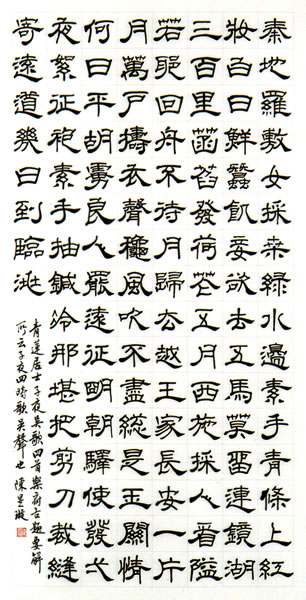 秦地羅敷女採桑綠水邊素手青條上紅
妝白日鮮蠶飢妾欲去五馬莫留連鏡湖
三百里菡萏發荷花五月西施採人看隘
若耶回舟不待月歸去越王家長安一片
月萬戶擣衣聲龝風吹不盡總是玉關情
何日平胡虜良人罷遠征明朝驛使發一
夜絮征袍素手抽鍼冷那堪把剪刀裁縫
寄遠道幾日到臨洮
青蓮居士子夜吳歌四首樂府古題要解
所云子夜四時歌吳聲也 陳